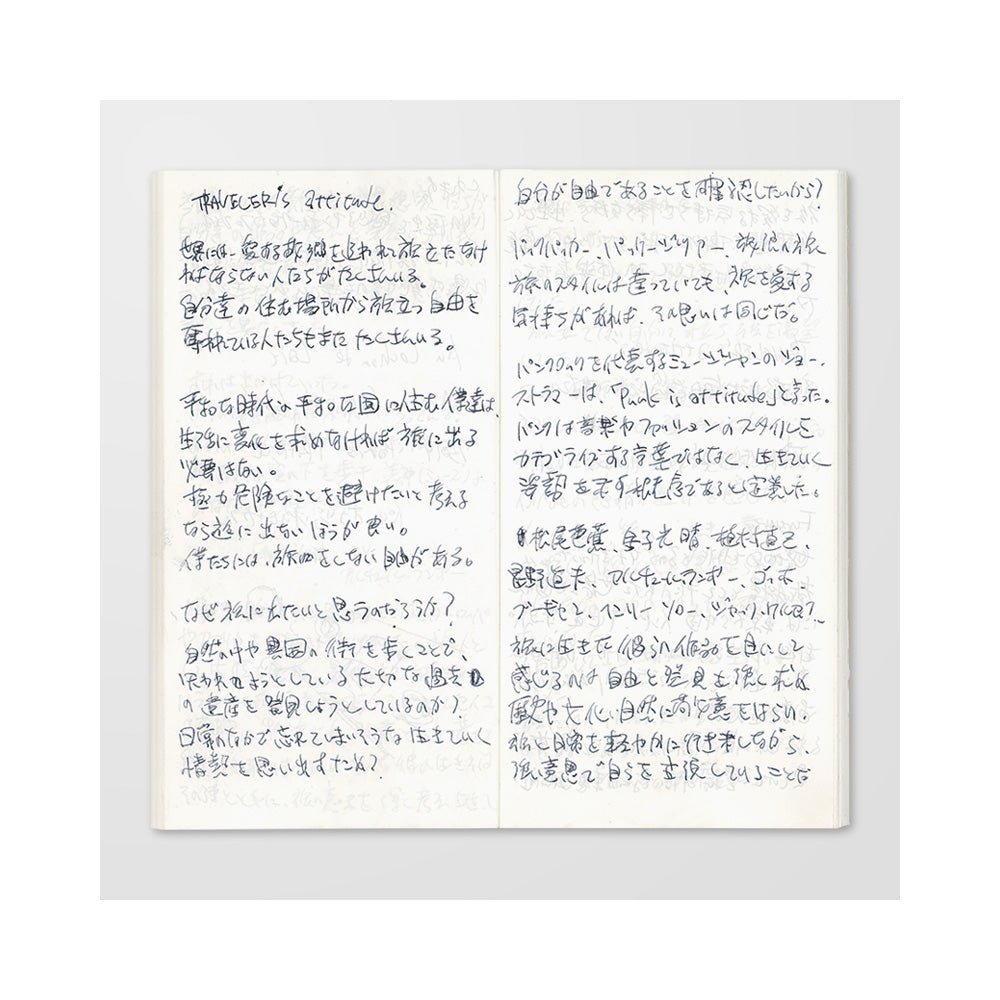 TRAVELER's attitude.
世界には、愛する故郷を追われて旅立たなけ
ればならない人たちがたくさんいる。
自分達の住む場所から旅立つ自由を
奪われている人たちもまたたくさんいる。
平和な時代の平和な国に住む僕達は、
生活に変化を求めなければ旅に出る
必要はない。
極力危険なことを避けたいと考える
なら旅に出ないほうが良い。
僕たちには、旅をしない自由がある。
なぜ旅に出たいと思うのだろうか?
自然の中や異国の街を歩くことで、
失われようとしている大切な過去
の遺産を発見しようとしているのか?
日常のなかで忘れてしまいそうな生きていく
情熱を思い出すため?
自分が自由であることを確認したいから?
バックパッカー、パッケージツアー、放浪の旅
旅のスタイルは違っていても、旅を愛する
気持ちがあれば、その思いは同じだ。
パンクロックを代表するミュージシャンのジョー・
ストラマーは、「Punk is attitude」と言った。
パンクは音楽やファッションのスタイルを
カテゴライズする言葉ではなく、生きていく
姿勢を示す根元であると定義した。
松尾芭蕉、金子光晴、植村直己、
星野道夫、アルチュール・ランボー、ゴッホ、
ゴーギャン、ヘンリー・ソロー、ジャック・ケルアック…
旅に生きた彼らの作品を目にして
感じるのは自由と発見を強く求め
歴史や文化、自然に敬意をはらい、
旅と日常を軽やかに行き来しながら、
強い意思で自らを主張していることだ